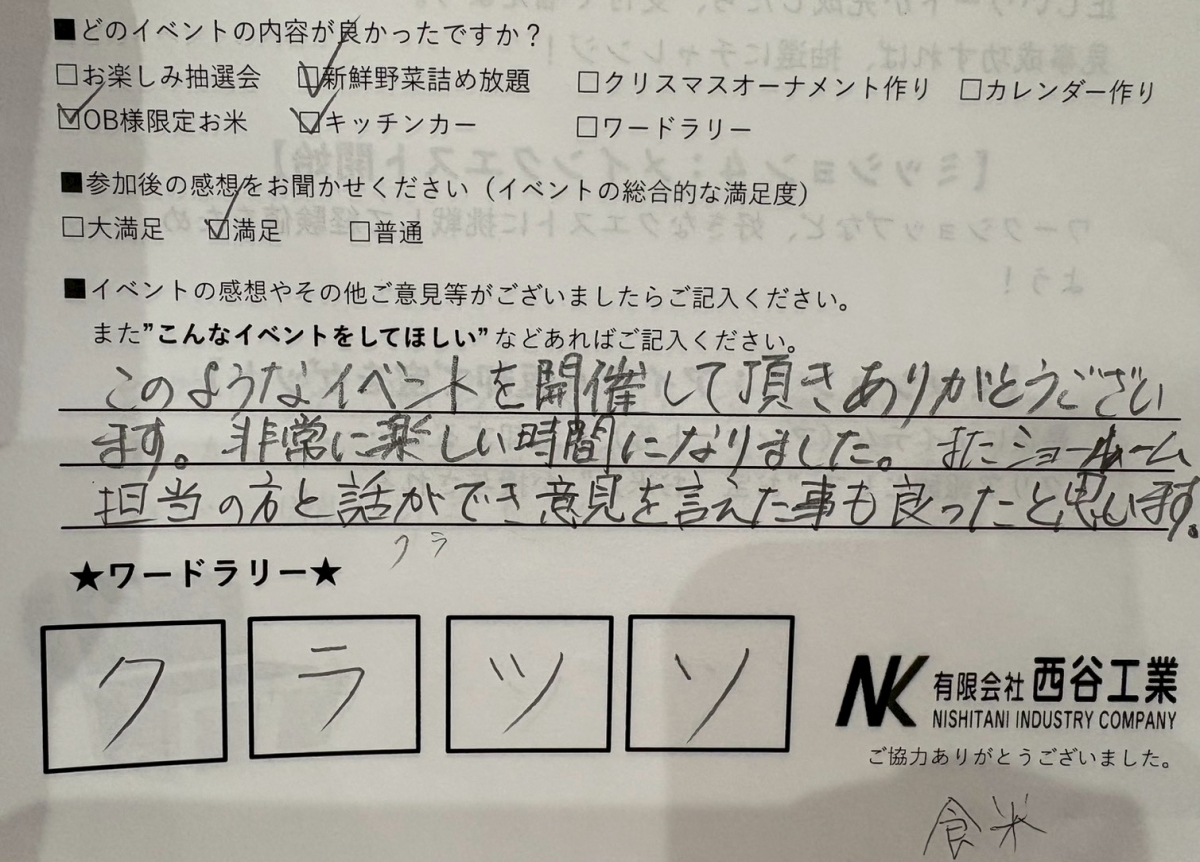 ■どのイベントの内容が良かったですか？
□お楽しみ抽選会 ☑新鮮野菜詰め放題 □クリスマスオーナメント作り □カレンダー作り
☑OB様限定お米 ☑キッチンカー □ワードラリー
■参加後の感想をお聞かせください（イベントの総合的な満足度）
□大満足 ☑満足 □普通
■イベントの感想やその他ご意見等がございましたらご記入ください。
また”こんなイベントをしてほしい”などあればご記入ください。
このようなイベントを開催して頂きありがとうござい
ます。非常に楽しい時間になりました。またショールーム
担当の方と話ができ意見を言えた事も良ったと思います。
クラ
★ワードラリー★
ク ラ ツ ソ
NK 有限会社 西谷工業
NISHITANI INDUSTRY COMPANY
ご協力ありがとうございました。
食米